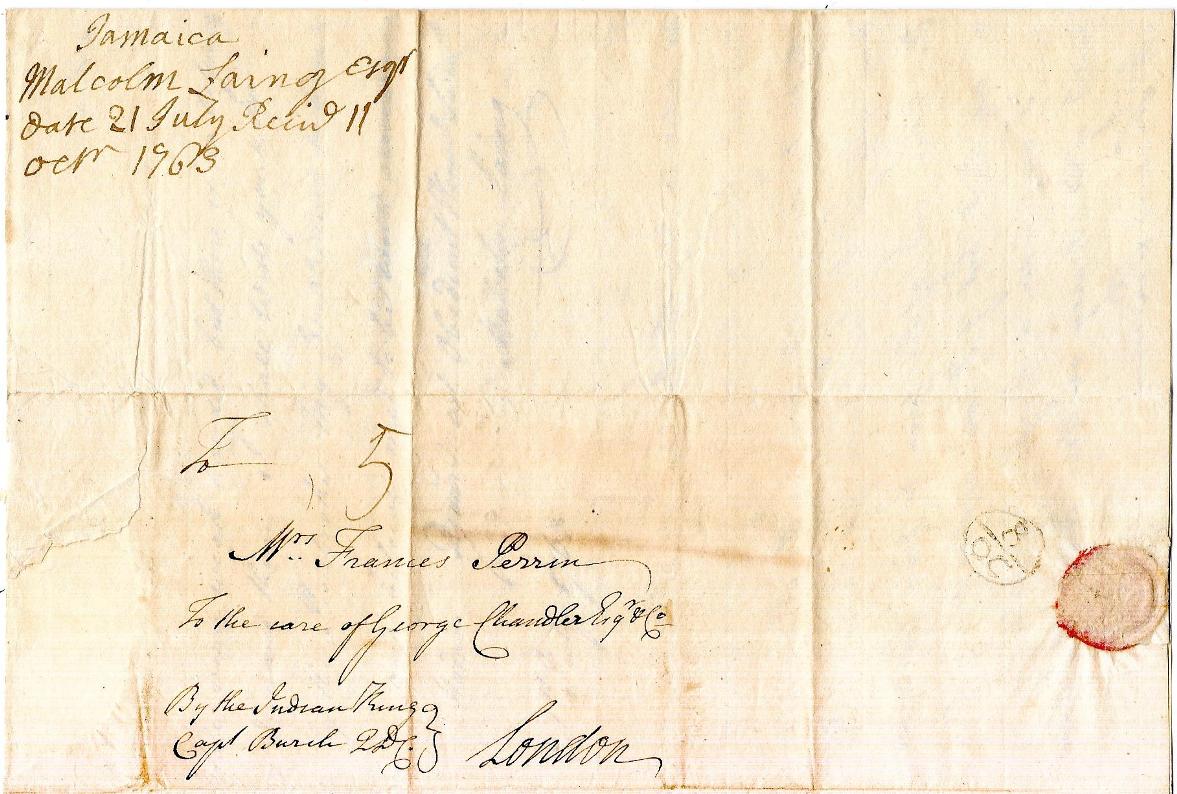 Jamaica
Malcolm Laing Esqr
date 21 July Recivd 11
octr 1763
To
5
Mrs. Frances Perrin
To the care of George Chandler Esqr & Co
By the Indian King
Capt Burch QDC
London
8
OC